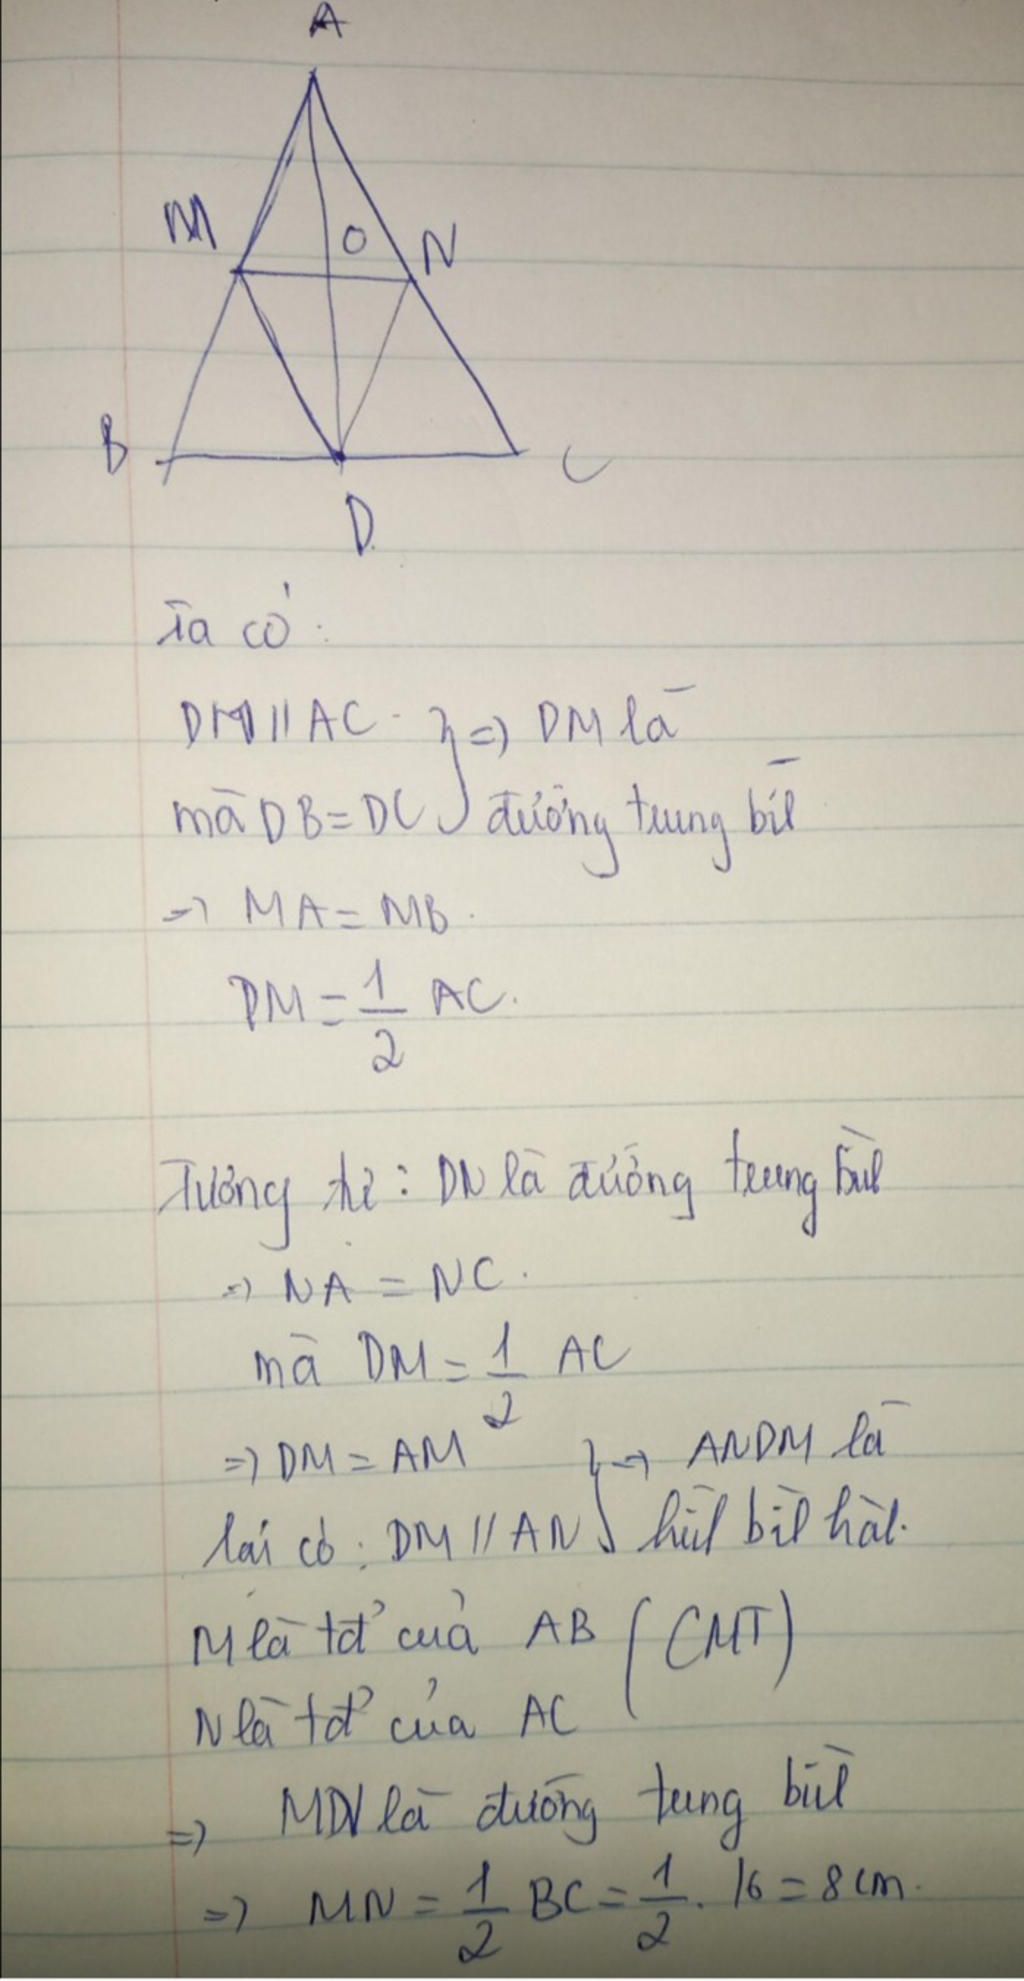 A
M
O
N
B
C
D.
Ta có:
DM // AC } => DM là
mà DB = DC } đường trung bìl
=> MA = MB.
DM = 1/2 AC.
Tương tự: DN là đường trung bìl
=> NA = NC.
mà DM = 1/2 AC
=> DM = AM } => ANDM là
lại có: DM // AN } hìl bìl hàl.
M là tđ' của AB (CMT)
N là tđ' của AC
=> MN là đường trung bìl
=> MN = 1/2 BC = 1/2 . 16 = 8 cm.